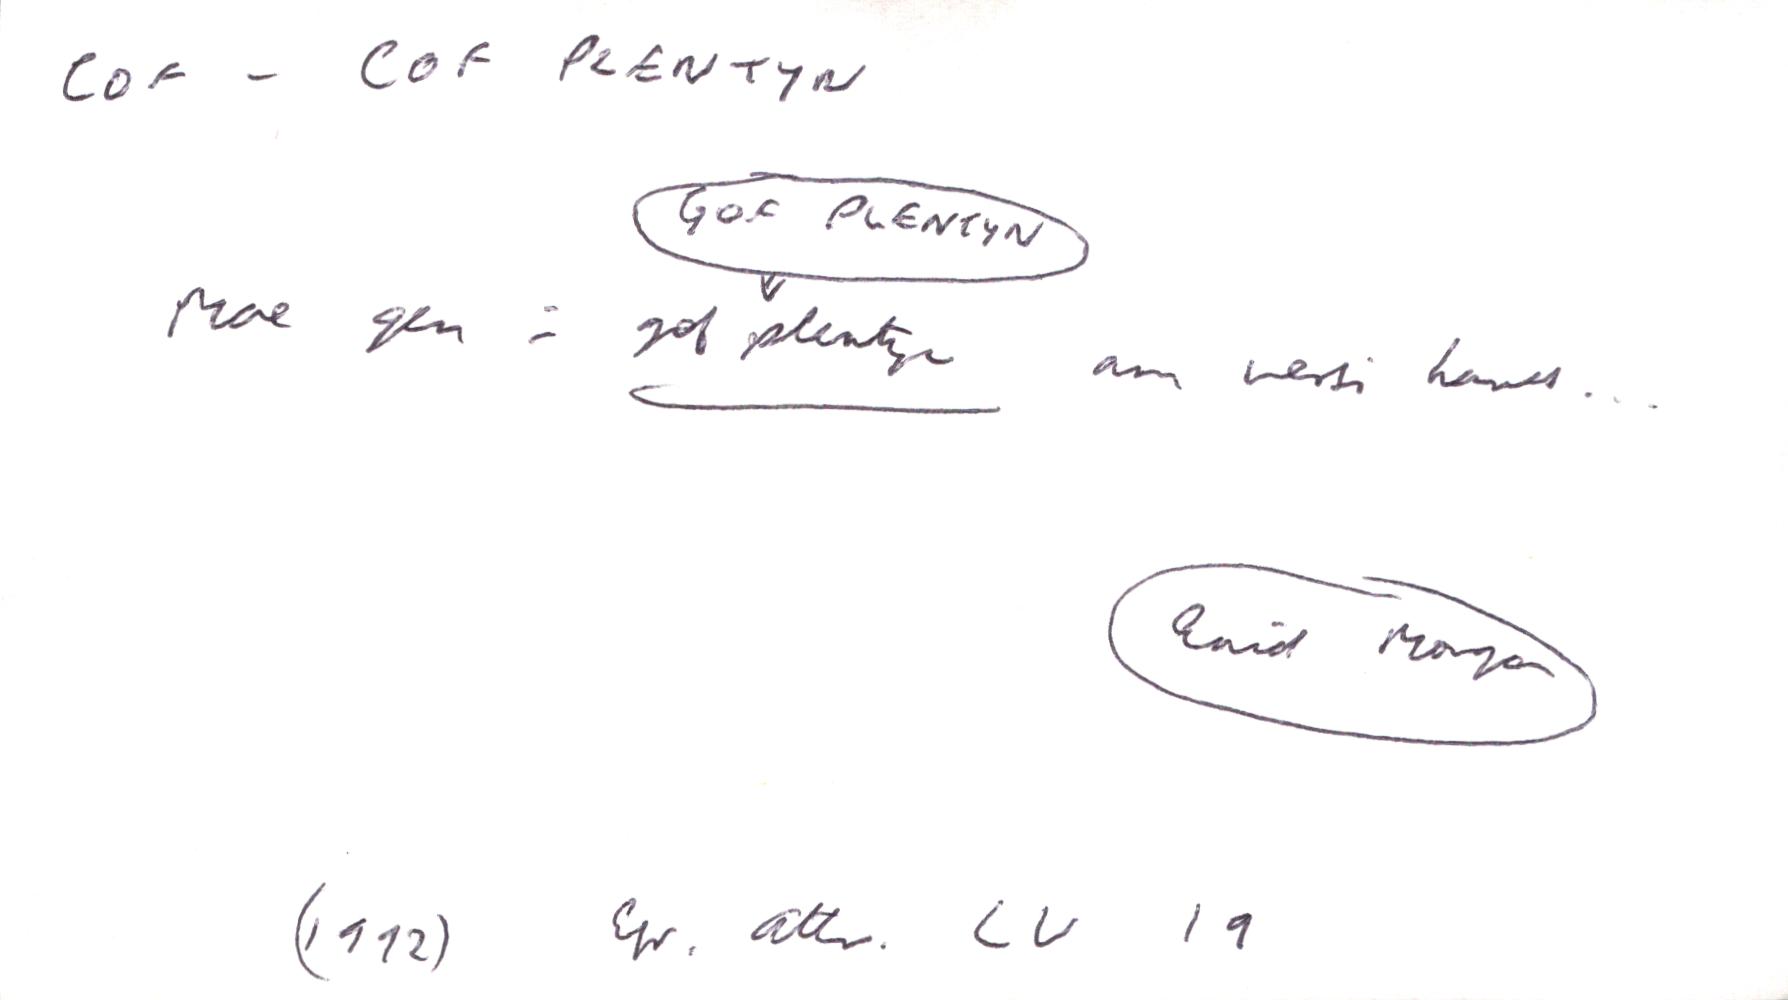 COF - COF PLENTYN
GOF PLENTYN
Mae gen i gof plentyn am wersi hanes...
Enid Morgan
(1992) Efr. Athr. LV 19